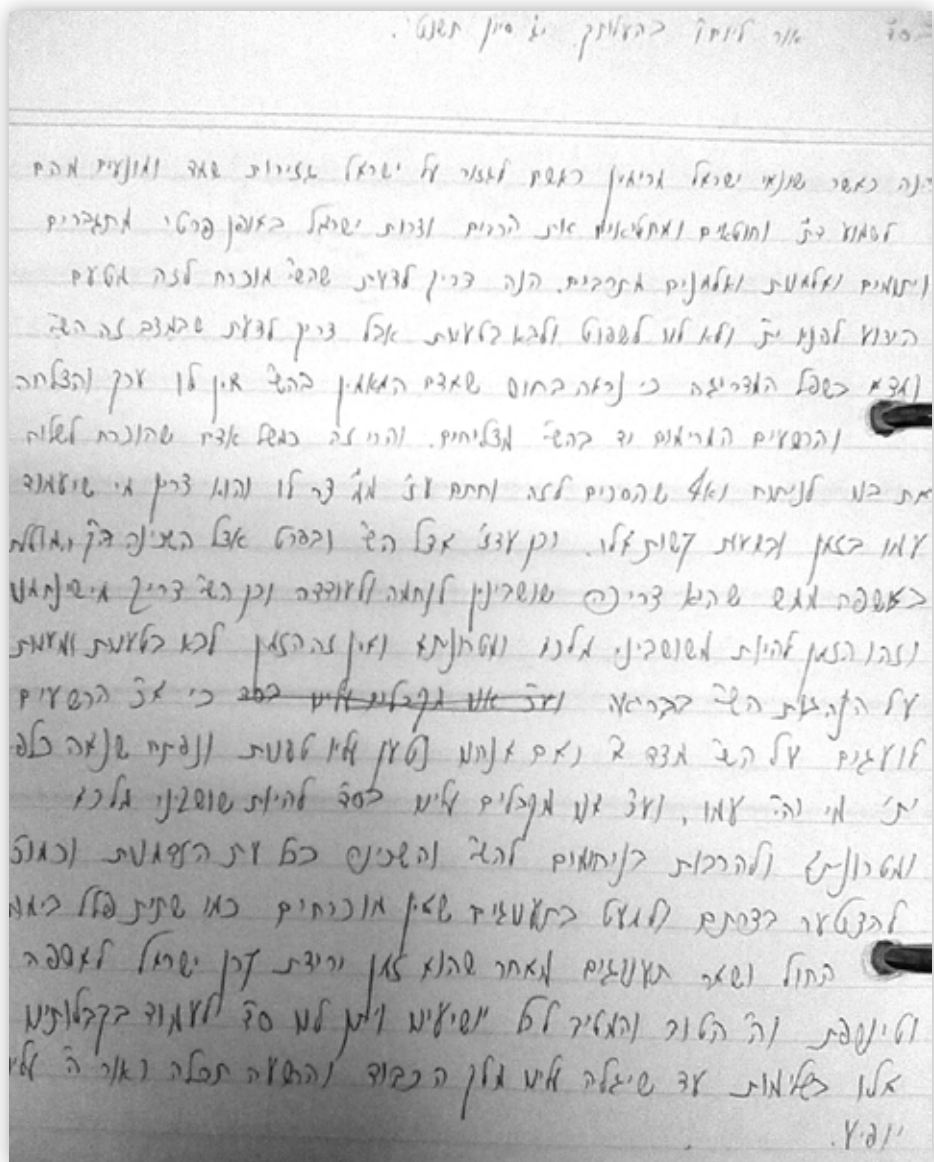 בס"ד אור ליום ו' בהעלותך י"ג סיון תשנט'.
הנה כאשר שונאי ישראל מרימין ראשם לגזור על ישראל גזירות שמד ומונעים מהם
לשמוע דת וחוטאים ומחטיאים את הרבים וצרות ישראל באופן פרטי מתגברים
ויתומים ואלמנות ואלמנים מתרבים. הנה צריך לדעת שהשי"ת מוכרח לזה מטעם
הידוע לפניו ית' ולא לנו לשפוט ולבא בטענות אבל צריך לדעת שבמצב זה השי"ת
נמצא בשפל המדריגה כי נראה בחוש שאדם המאמין בהשי"ת אין לו ערך והצלחה
והרשעים המרימים יד בהשי"ת מצליחים. והרי זה כמשל אדם שהוכרח לשלוח
את בנו לניתוח ואף שהסכים לזה וחתם ע"ז מ"מ צר לו והוא צריך מי שיעמוד
עמו בזמן ובעת קשות אלו. וכן עד"ז אצל השי"ת ובפרט אצל השכינה הק' המוטלת
באשפה ממש שהיא צריכה שושבינין לנחמה ולעודדה וכן השי"ת צריך מי שינחמנו
וזהו הזמן להיות משושביני מלכא ומטרוניתא ואין זה הזמן לבא בטענות ומענות
על הנהגות השי"ת בבריאה ועכ"פ אנו מקבלים עלינו בס"ד כי א"כ הרשעים
לועגים על השי"ת מצד א' ואם אנחנו נטען עליו טענות ונפתח שנאה כלפ
ית' מי יהי' עמו, וע"כ אנו מקבלים עלינו בס"ד להיות שושביני מלכא
ומטרוניתא ולהרבות בניחומים להשי"ת והשכינה בכל עת הזדמנות וכמו"כ
להצטער בצרתם ולמעט בתענוגים שאין מוכרחים כמו שתית כלל בימי
החול ושאר תענוגים מאחר שהוא זמן ירידת קרן ישראל לאשפה
וטינופת וה' הטוב והמטיב לכל יושיענו ויתן לנו סד לעמוד בקבלותינו
אלו בשלימות עד שיגלה עלינו מלך הכבוד והרשעה תכלה ואור ה' עלינו
יופיע.